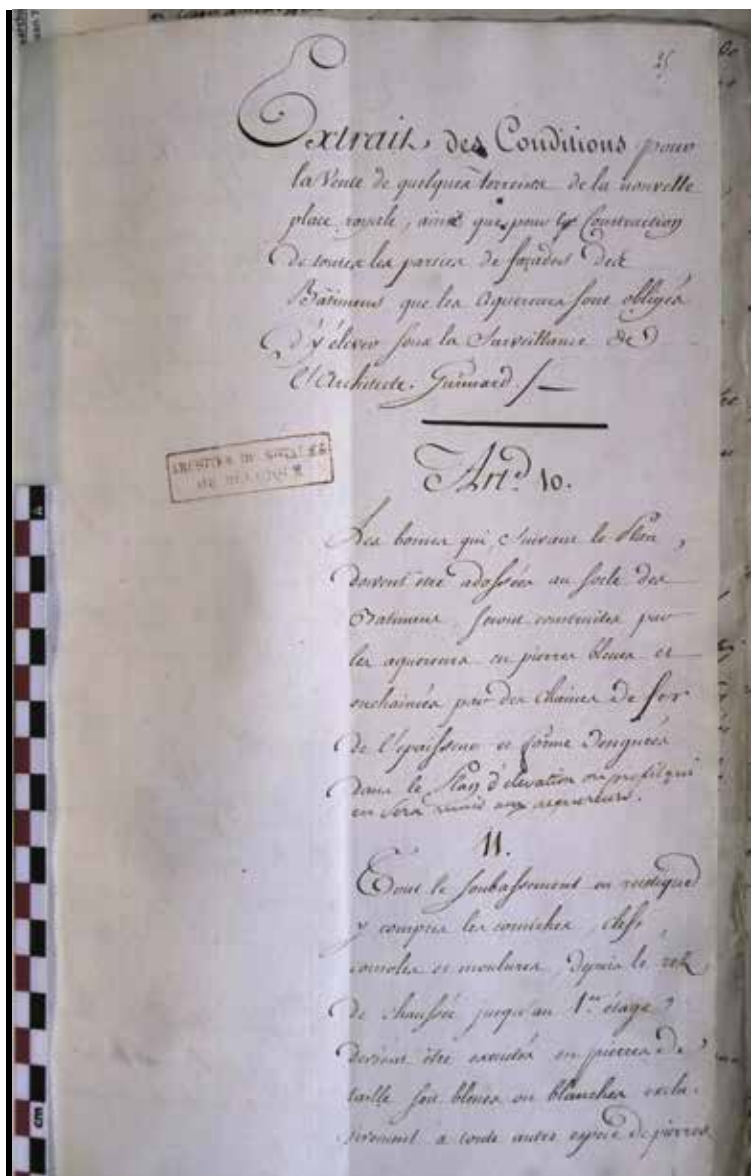 25
Extrait des Conditions pour
la Vente de quelques terreins de la nouvelle
place royale, ainsi que pour la Construction
de toutes les parties de façades des
Bâtimens que les aquereurs sont obligés
d'y élever sous la Surveillance de
l'Architecte Guimard /
Art. 10.
Les bornes qui, suivant le Plan,
doivent être adossées au socle des
Batimens, seront construites par
les aquereurs en pierres bleues et
enchainées par des chaines de fer
de l'epaisseur et forme
dans le Plan d'elevation ou profil qui
en sera remis aux acquereurs.
11.
Tout le soubassement en rustique
y compris les corniches, clefs,
consoles et moulures, depuis le rez
de chaussée jusqu'au 1er étage,
devront être executés en pierres de
taille soit bleues ou blanches exclu-
sivement a toute autre espece de pierres
ARCHIVES DU ROYAUME
DE BELGIQUE
cm